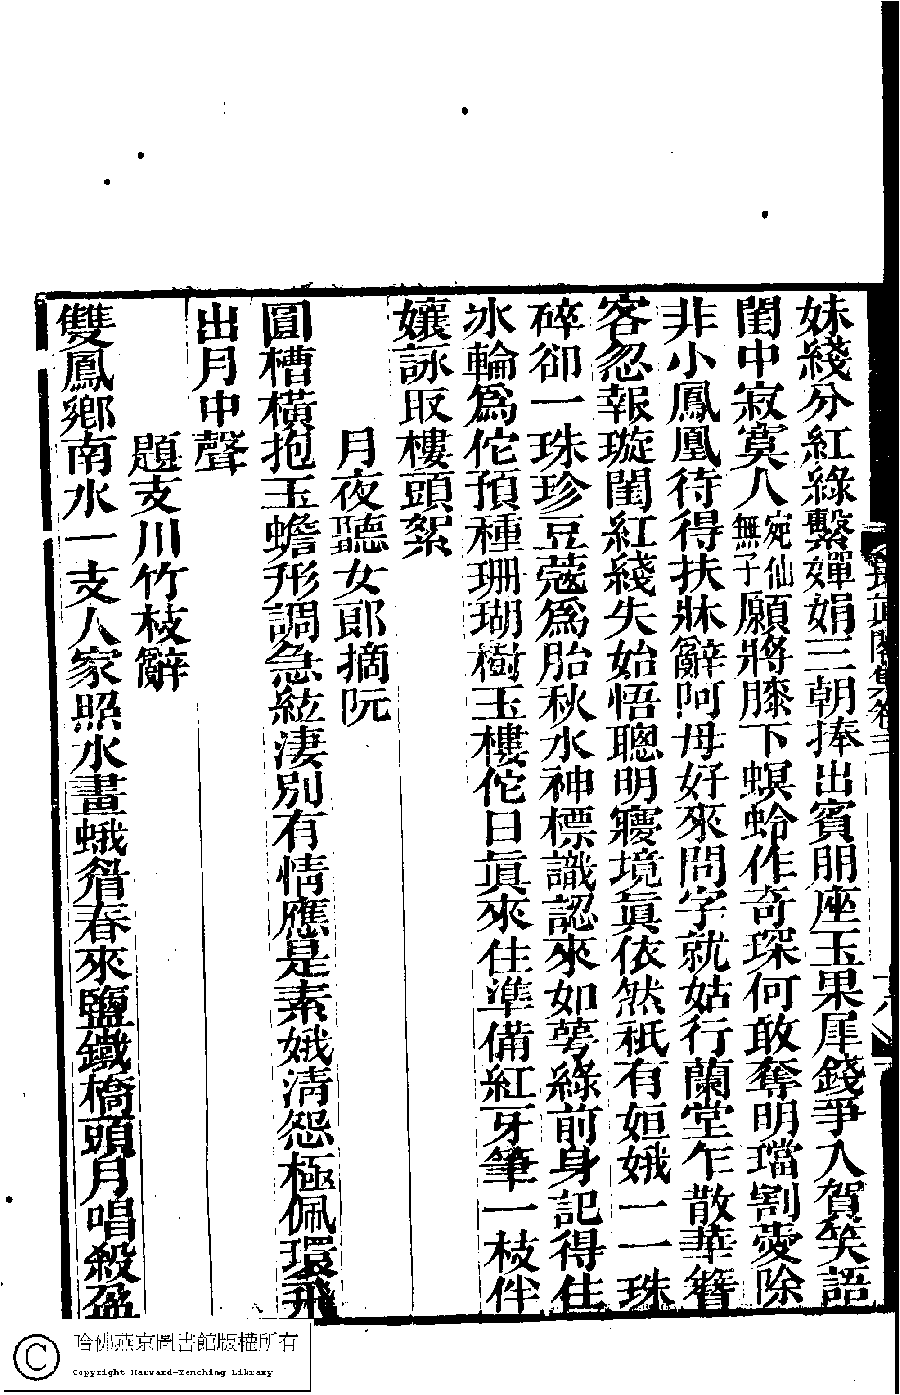 妹綫分紅綠繫嬋娟三朝捧出賓朋座玉果犀錢爭入賀笑語
閨中寂寞人宛仙無子願將膝下螟蛉作奇琛何敢奪明璫割愛除
非小鳳凰待得扶牀辭阿母好來問字就姑行蘭堂乍散華簪
客忽報璇閨紅綫失始悟聰明寱境眞依然秖有姮娥一一珠
碎卻一珠珍豆蔻爲胎秋水神標識認來如萼綠前身記得住
冰輪爲佗預種珊瑚樹玉樓佗日眞來住準備紅牙筆一枝伴
孃詠取樓頭絮
月夜聽女郎摘阮
圓槽橫抱玉蟾形調急絃淒別有情應是素娥淸怨極佩環飛
出月中聲
題支川竹枝辭
雙鳳鄉南水一支人家照水畫蛾眉春來鹽鐵橋頭月唱殺盈
哈佛燕京圖書館版權所有
Copyright Harvard-Yenching Library